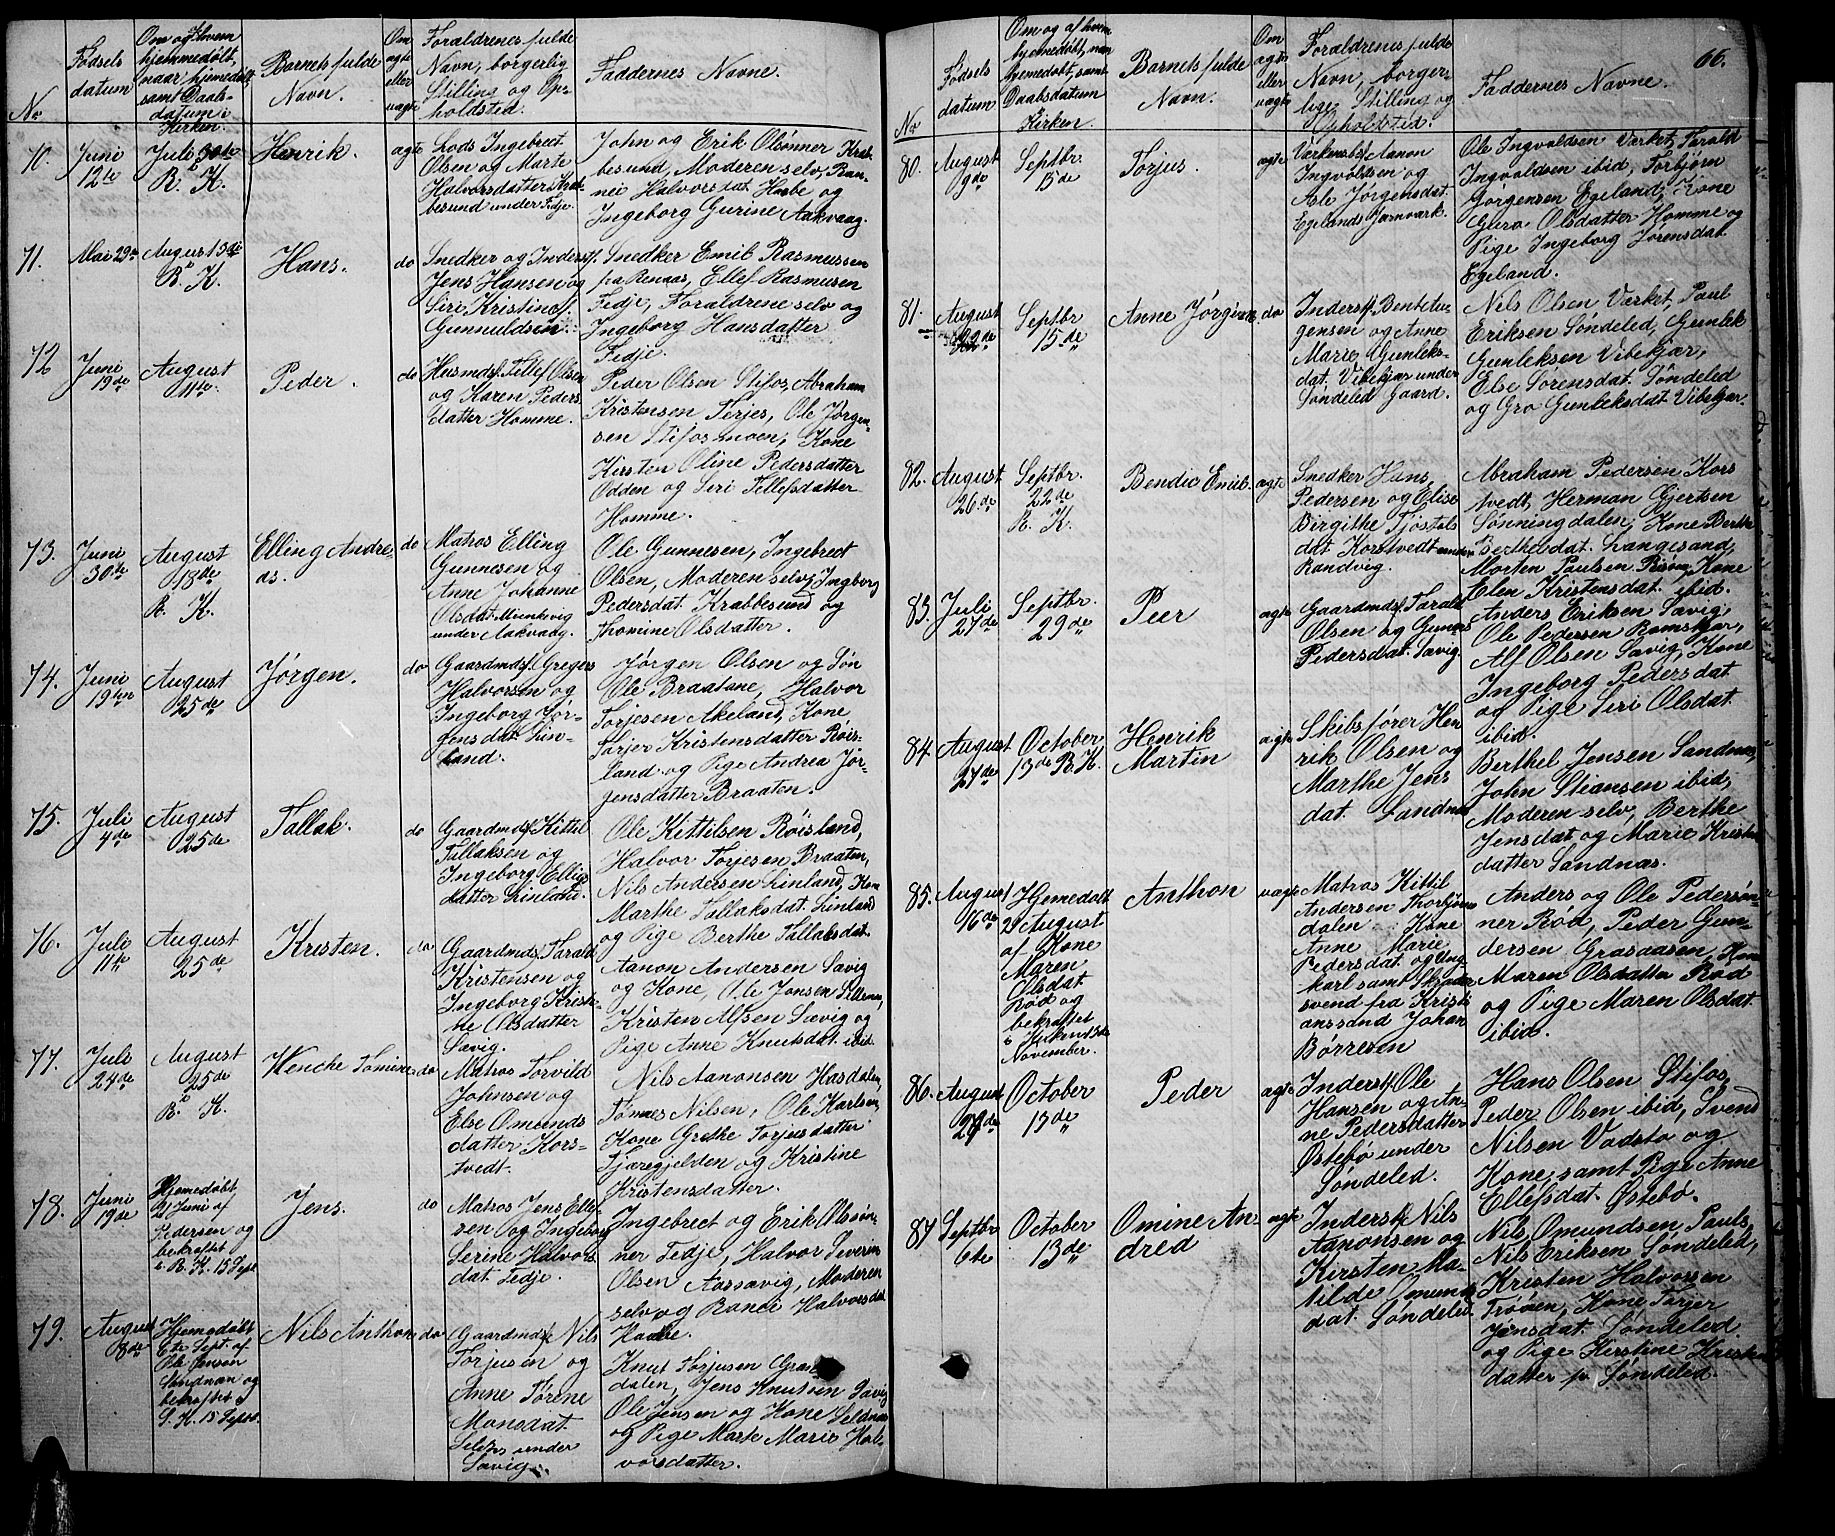 No
Fødsels
datum
Om og af hvem
hjemmedøbt,
naar hjemedøbt,
samt Daabs-
datum i
Kirken.
Barnets fulde
Navn.
Om
ægte
eller
uægte
Forældrenes fulde
Navn, borgerlig
Stilling og Op-
holdsted.
Faddernes Navne.
70.
Juni
12te
Juli 30te
R. K.
Henrik.
ægte
Lods Ingebret
Olsen og Marte
Halvorsdatter Krab-
besund under Fidje.
John og Erik Olsønner Krab-
besund, Moderen selv, Ran-
nei Halvorsdat. Hasbe og
Ingeborg Gurine Aakvaag.
71.
Mai 29de
August 3de
R. K.
Hans.
do
Snedker og Inderst
Jens Hansen og
Siri Kristine
Gunnuldsen.
Snedker Emil Rasmussen
paa Renaas, Ellef Rasmusen
Fidje, Forældrene selv og
Ingeborg Hansdatter
Fidje.
72
Juni
19de
August
11te
Peder.
do
Husmds. Tellef Olsen
og Karen Peders
datter Homme.
Peder Olsen Stifos, Abraham
Kristensen Terjes, Ole Jørgen-
sen Stifosmoen, Kone
Kirsten Oline Pedersdatter
Odden og Siri Tellefsdatter
Homme.
73.
Juni
30te
August
18de
R. K.
Elling Andre-
as.
do
Matros Elling
Gunnesen og
Anne Johanne
Olsdat. Mienkvig
under Aakvaag.
Ole Gunnesen, Ingebredt
Olsen, Moderen selv, Ingeborg
Pedersdat. Krabbesund og
Thomine Olsdatter.
74.
Juni
19ten
August
25de
Jørgen.
do
Gaardmds. Gregers
Halvorsen og
Ingeborg Jør-
gensdat. Lin-
land.
Jørgen Olsen og Søn
Ole Braatane, Halvor
Torjesen Akeland, Kone
Torjer Kristensdatter Røis-
land og Pige Andrea Jør-
gensdatter Braaten.
75.
Juli
4de
August
25de
Tallak.
do
Gaardmds. Kittil
Tallaksen og
Ingeborg Ellings
datter Linland.
Ole Kittilsen Røisland,
Halvor Torjesen Braaten,
Nils Andersen Linland, Kone
Marthe Tallaksdat. Linland
og Pige Berthe Tallaksdat.
76.
Juli
11te
August
25de
Kristen.
do
Gaardmds. Tarald
Kristensen og
Ingeborg Kristi-
ne Olsdatter
Savig.
Aanon Andersen Savig
og Kone, Ole Jonsen
Kristen Alfsen Sævig og
Pige Anne Knutsdat. ibid.
77.
Juli
24de
August
25de
R. K.
Wenche Tomine
do
Matros Torvild
Johnsen og
Else Omunds
datter Kors-
tvedt.
Nils Aanonsen Hasdalen,
Tønnes Nilsen, Ole Karlsen,
Kone Grethe Torjusdatter
Tjæregjelden og Kristine
Kristensdatter.
78.
Juni
19de
Hjemedøbt
21 Juni af
Pedersen og
bekræftet
i R. K. 15 Sept.
Jens.
do
Matros Jens Ellef
sen og Ingeborg
Serine Halvors
dat. Fidje.
Ingebret og Erik Olssøn-
ner Fidje, Halvor Severin
Olsen Aassævig, Moderen
selv og Rande Halvorsdat
Hasbe.
79.
August
8de
Hjemedøbt
Ole Jensen
Sandnæs og
bekræftet i
S. K. 15 Sept.
Nils Anthon
do
Gaardmds. Nils
Torjusen og
Anne Tørene
Monsdat.
under
Savig.
Knut Torjusen Gran-
dalen, Jens Knutsen Savig
Ole Jensen og Kone Seldnæs
og Pige Marte Marie Hal-
vorsdatter.
No
Fødsels
datum
Om og af hvem
hjemedøbt, naar
hjemedøbt, samt
Daabsdatum
i Kirken
Barnets fulde
Navn.
Om
ægte
eller
uægte
Forældrenes fulde
Navn, borger-
lige Stilling og
Opholdsted.
Faddernes Navne.
66.
80.
August
9de
Septbr.
15de
Torjus.
ægte
Værksarb. Aanon
Ingvoldsen og
Asle Jørgensdat.
Egelands Jernværk.
Ole Ingvoldsen Værket, Tarald
Ingvoldsen ibid, Torbjørn
Jørgensen Egeland, Kone
Guro Olsdatter Homme og
Pige Ingeborg Jørensdat.
Egeland.
81.
August
22de
Septbr
15de
Anne Jørgine.
do
Inderst Bent Tur-
gensen og Anne
Marie Gunleks-
dat. Vibekjær under
Søndeled Gaard.
Nils Olsen Værket, Paul
Eriksen Søndeled, Gunlek
Gunleksen Vibekjær,
Else Sørensdat. Søndeled
og Gro Gunleksdat. Vibekjær.
82.
August
26de
Septbr.
22de
R. K.
Bendic Emil.
ægte
Snedker Hans
Pedersen og Elise
Birgithe Tjøstels
dat Korstvedt under
Randvig.
Abraham Pedersen Kors
tvedt, Herman Gjertsen
Sønningdalen, Kone Berthe
Berthelsdat. Langesand,
Morten Paulsen Risøen, Kone
Elen Kristensdat. ibid.
83.
Juli
27de
Septbr.
29de
Peer
ægte
Gaardmds. Tarald
Olsen og Gunne
Pedersdat. Savig.
Anders Eriksen Savig,
Ole Pedersen Ramskjær,
Alf Olsen Savig, Kone
Ingeborg Pedersdat
og Pige Siri Olsdat
ibid.
84.
August
27de
October
13de R. K.
Henrik
Martin
ægte
Skibsfører Hen
rik Olsen og
Marthe Jens
dat. Sandnæs
Berthel Jensen Sandnæs,
John Stiansen ibid,
Moderen selv, Berthe
Jensdat og Marie Kristens
datter Sandnæs.
85.
August
16de
Hjemedøbt
28 August
af Kone
Maren
Olsdat
Rød og
bekræftet
i Kirken 3de
November.
Anthon
uægte
Matros Kittil
Andersen Thorbjørns
dalen Kone
Anne Marie
Pedersdat og Ung
karl samt Skræder
svend fra Kristi
anssand Johan
Børresen
Anders og Ole Pedersøn-
ner Rød, Peder Gun-
dersen Grasaasen, Kone
Maren Olsdatter Rød
og Pige Maren Olsdat.
ibid.
86.
August
29de
October
13de
Peder
ægte
Inderst Ole
Hansen og An-
ne Pedersdatter
Østebø under
Søndeled.
Hans Olsen Stifos,
Peder Olsen ibid, Svend
Nilsen Vadstø og
Kone, samt Pige Anne
Ellefsdat. Østebø.
87
Septbr
6te
October
13de
Omine An-
dred
ægte
Inderst Nils
Aanonsen og
Kirsten Ma-
tilde Omunds
dat. Søndeled.
Nils Omundsen Pauls,
Nils Eriksen Søndeled,
Kristen Halvorsen
Trøen, Kone Torjer
Jensdat. Søndeled
og Pige Kirstine Kristens
datter p. Søndeled.